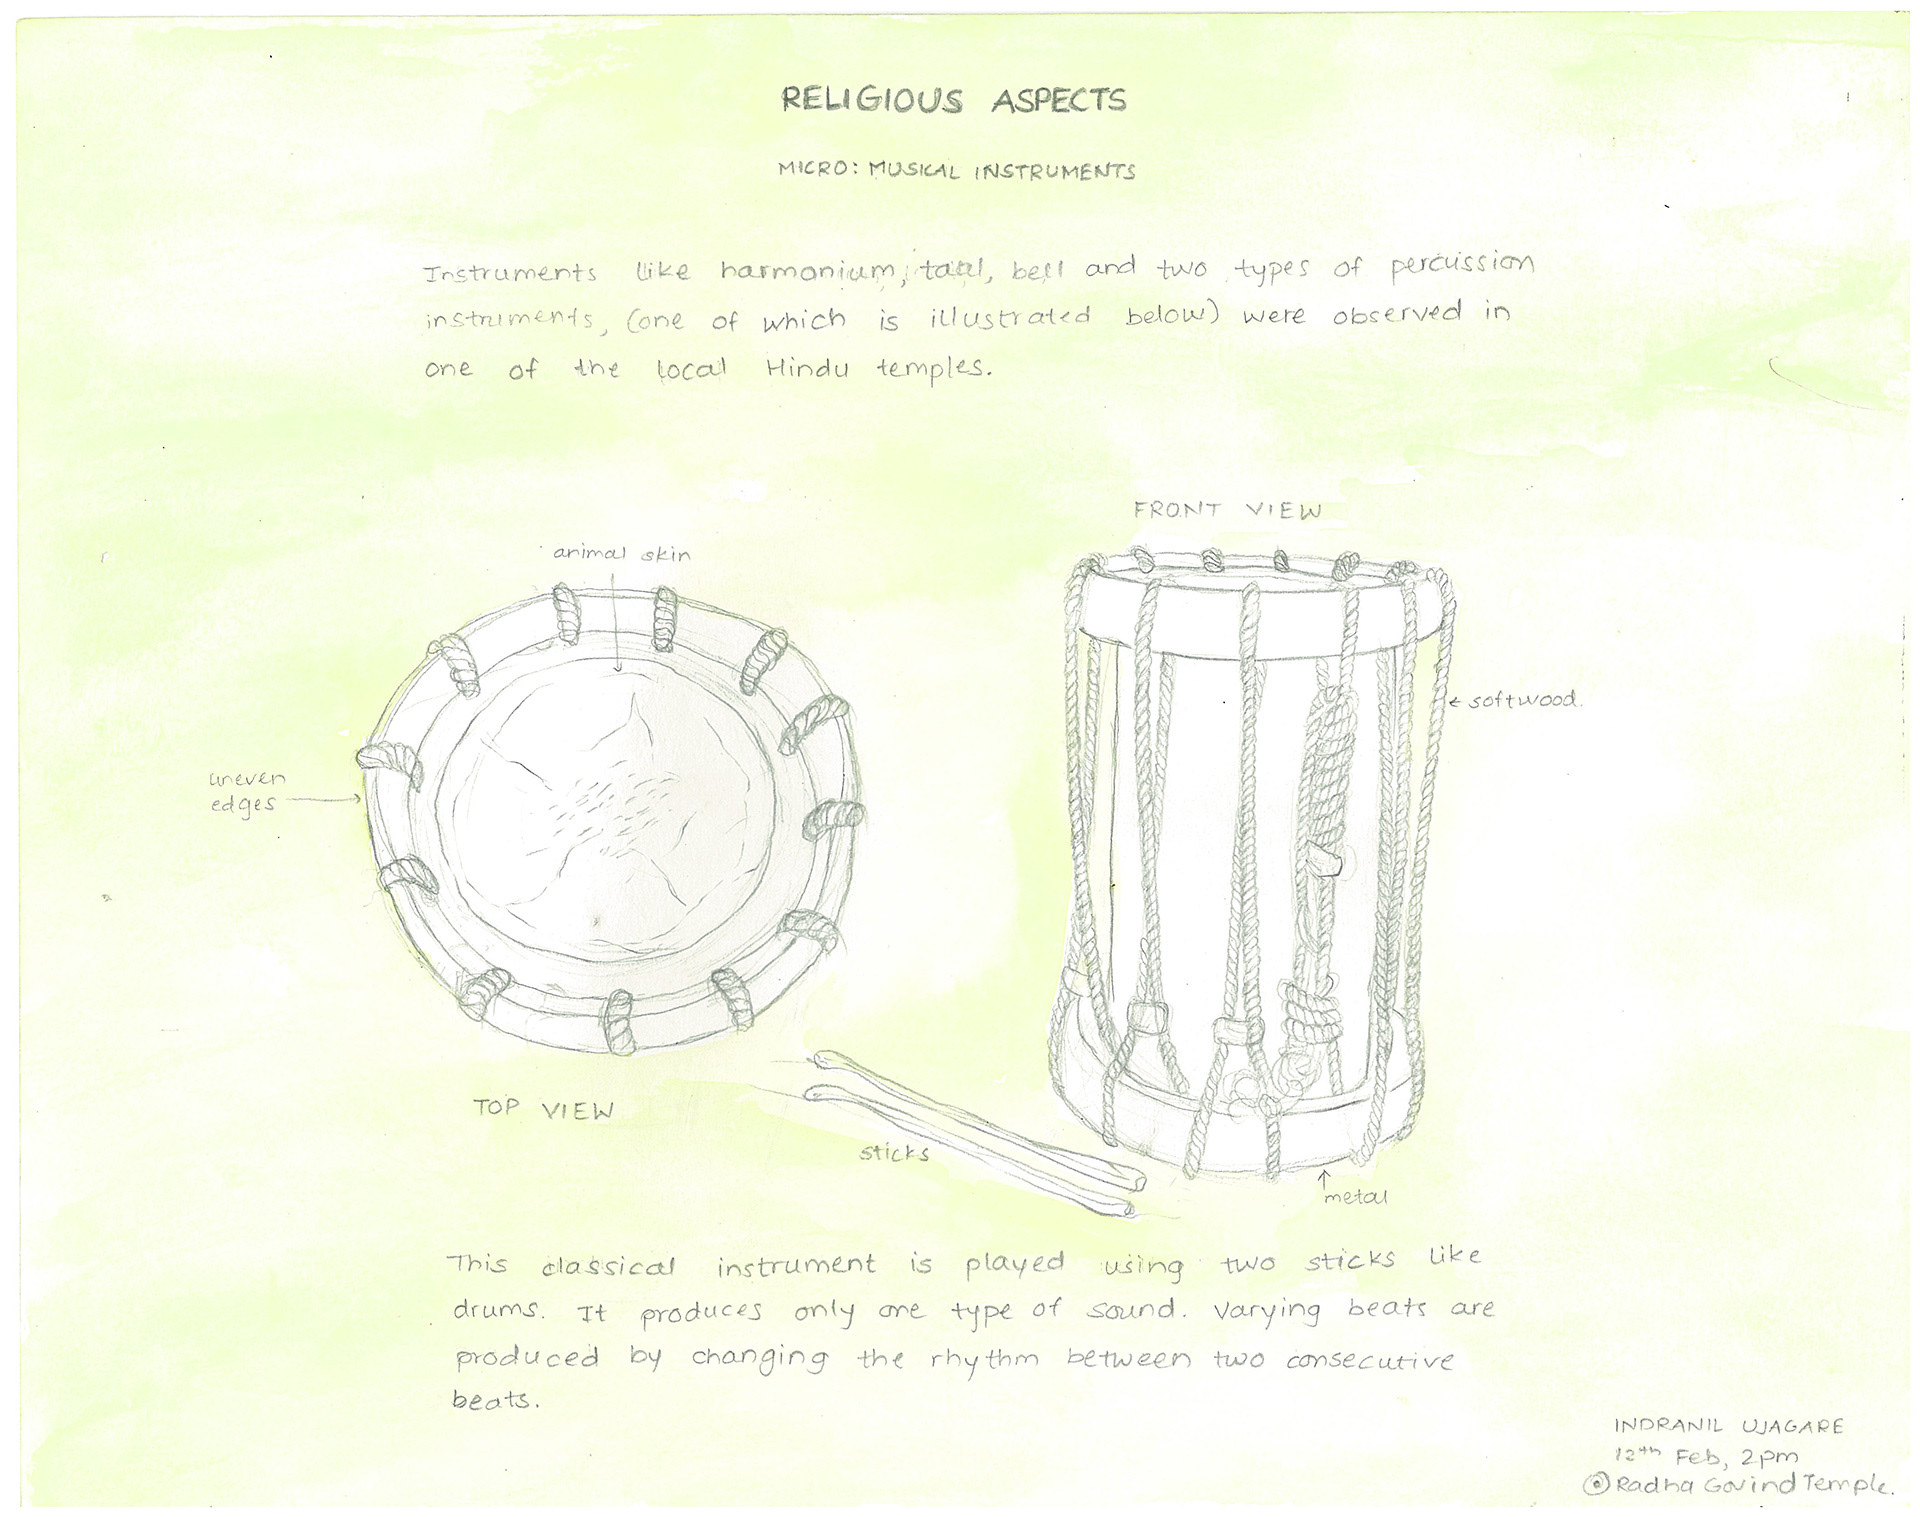 RELIGIOUS ASPECTS
MICRO: MUSICAL INSTRUMENTS
Instruments like harmonium, taal, bell and two types of percussion
instruments, (one of which is illustrated below) were observed in
one of the local Hindu temples.
FRONT VIEW
animal skin
softwood.
uneven
edges
TOP VIEW
sticks
metal
This classical instrument is played using two sticks like
drums. It produces only one type of sound. Varying beats are
produced by changing the rhythm between two consecutive
beats.
INDRANIL UJAGARE
12th Feb, 2pm
@ Radha Govind Temple.